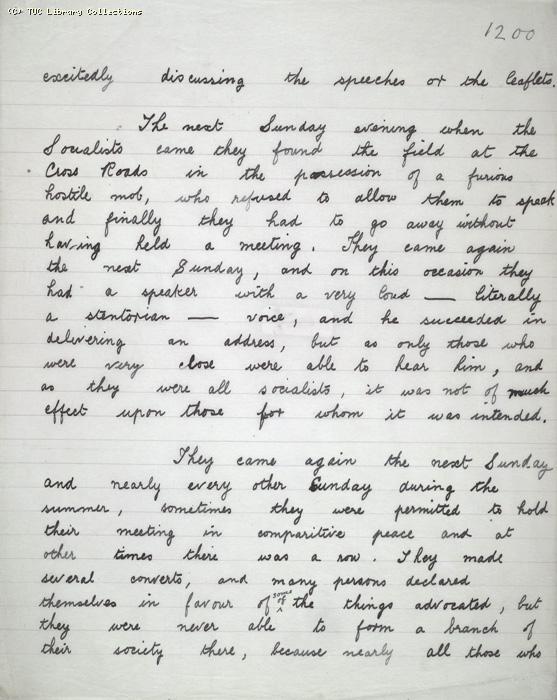 (C) TUC Library Collections
1200
excitedly discussing the speeches or the leaflets.
The next Sunday evening when the
Socialists came they found the field at the
Cross Roads in the possession of a furious
hostile mob, who refused to allow them to speak
and finally they had to go away without
having held a meeting. They came again
the next Sunday, and on this occasion they
had a speaker with a very loud — literally
a stentorian — voice, and he succeeded in
delivering an address, but as only those who
were very close were able to hear him, and
as they were all socialists, it was not of much
effect upon those for whom it was intended.
They came again the next Sunday
and nearly every other Sunday during the
summer, sometimes they were permitted to hold
their meeting in comparitive peace and at
other times there was a row. They made
several converts, and many persons declared
themselves in favour of some of the things advocated, but
they were never able to form a branch of
their society there, because nearly all those who